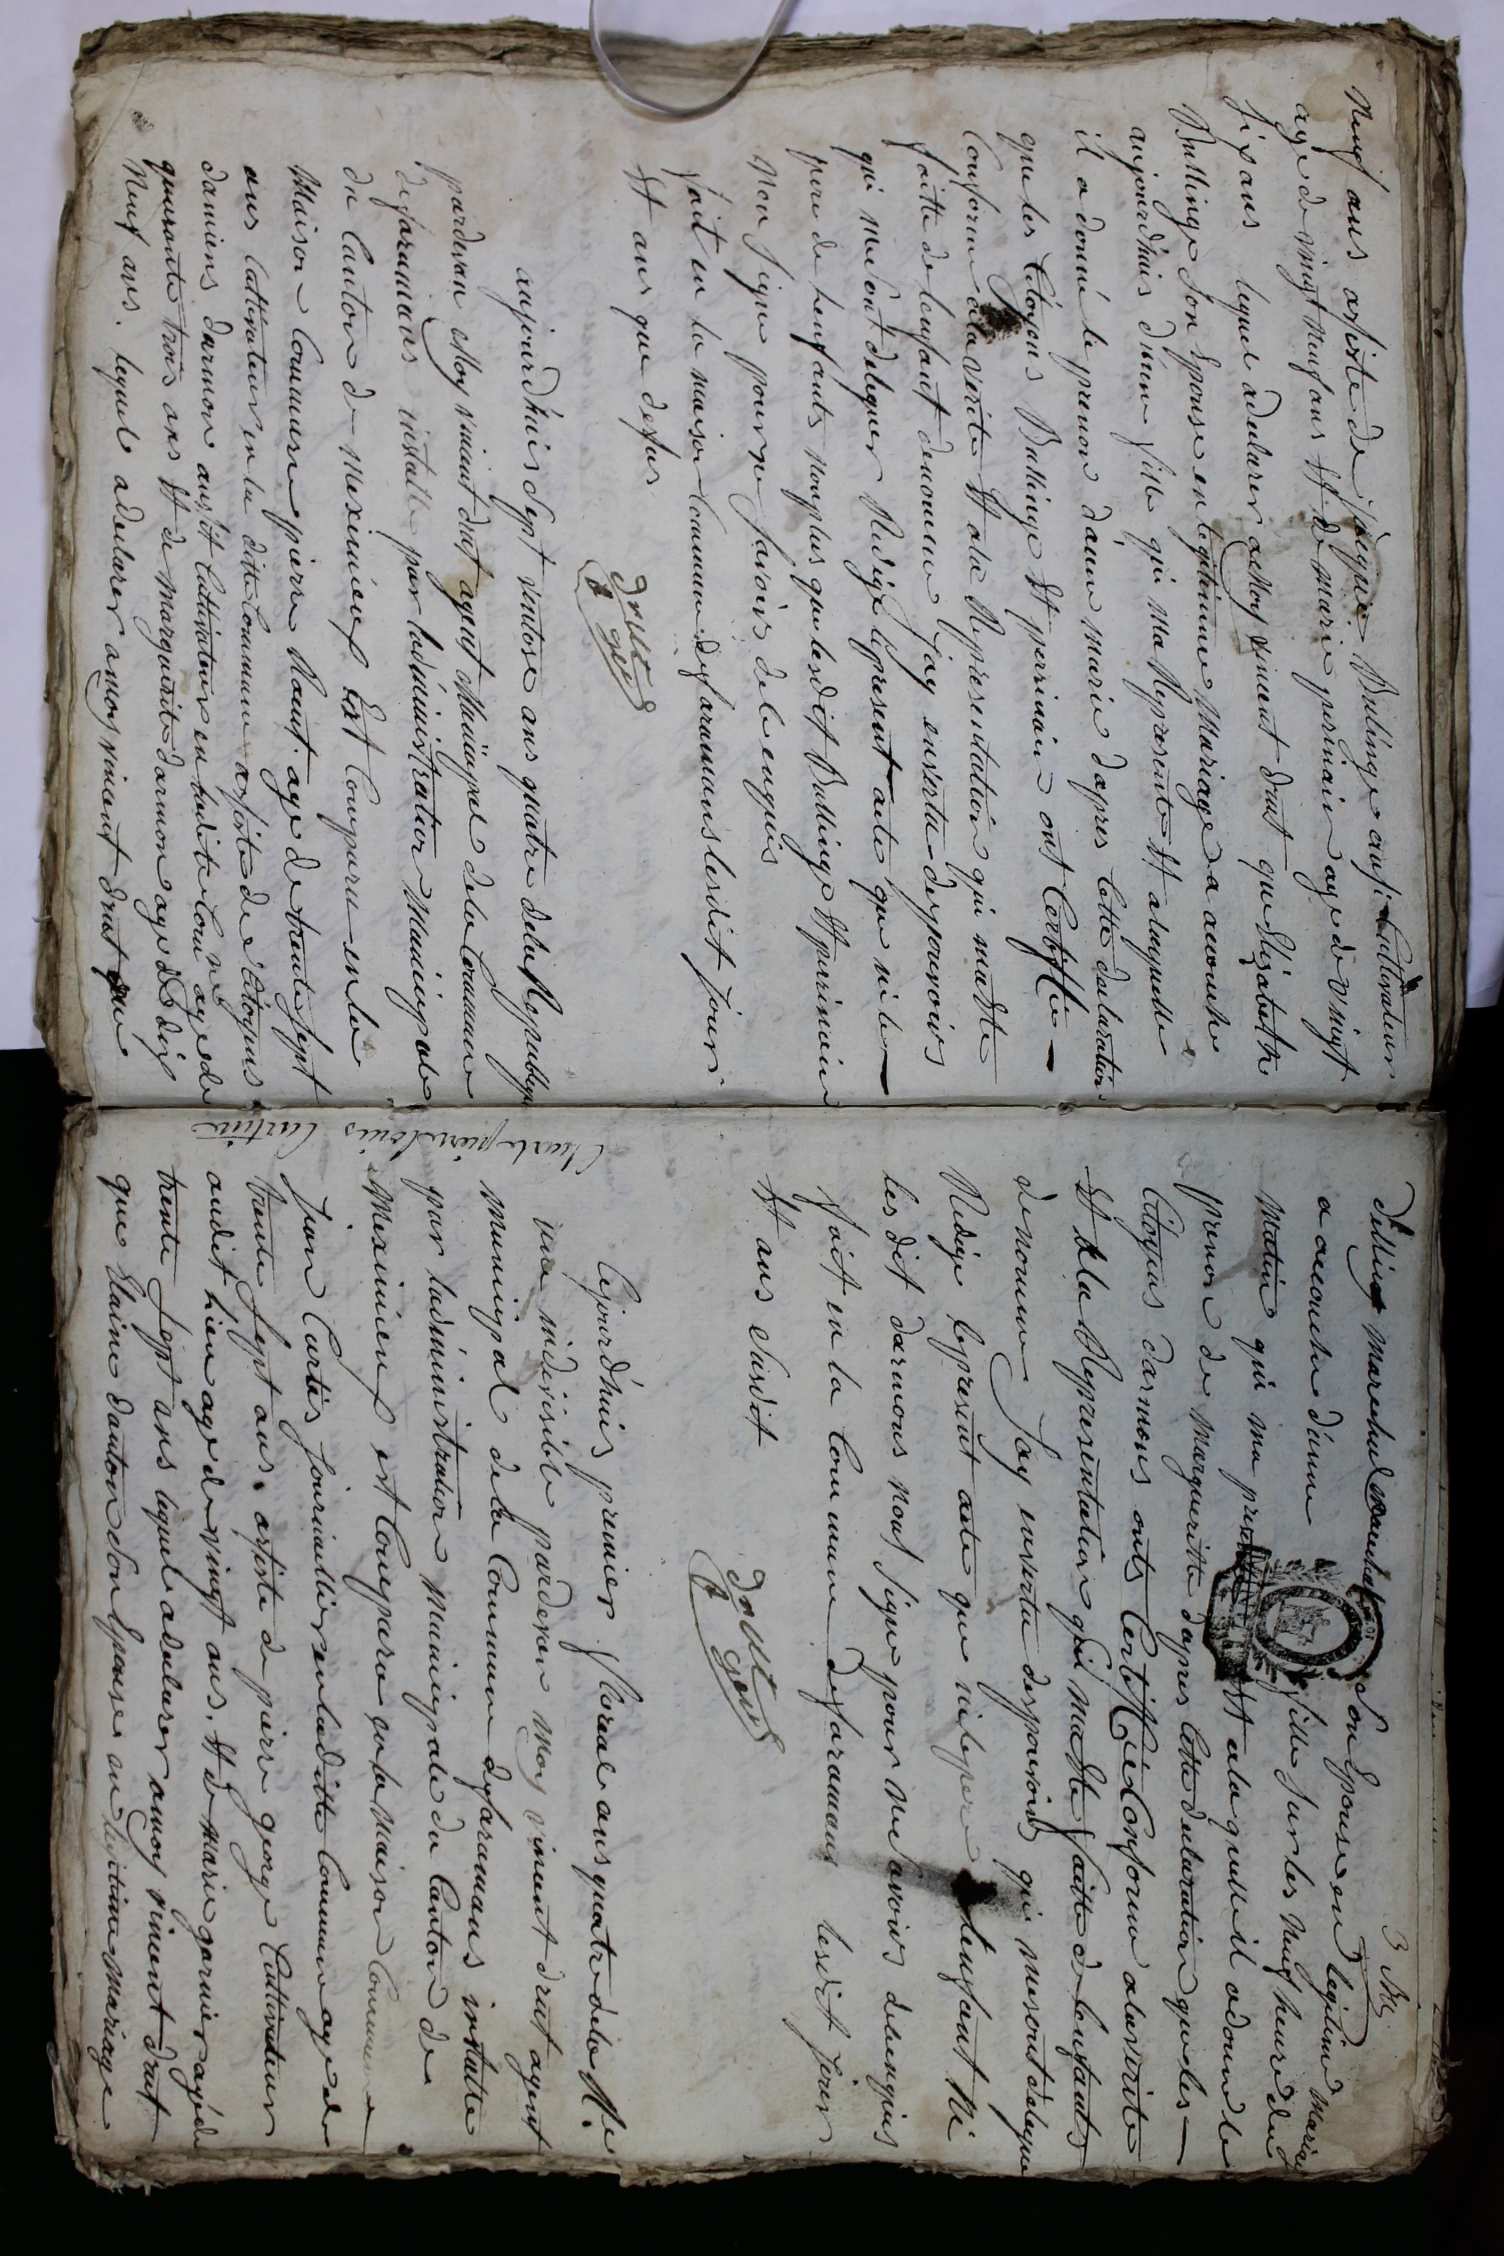 Neuf ans assiste de Bullinge aussi Cultivateur
age de vingt Neuf ans Et de marie perrinain age de vingt
six ans lequel adeclarer amoy vincent drut que Elizabethe
Bullinge son Epouse en legitime Mariage a accouche
aujourdhuis d'unne fille qui ma Represente Et alaquelle
il a donné le prenon danne marie dapres cette declaration
que les Citoyens Bullinge Et perrinain ont Certiffie
Conforme ala verite Et ala Representation qui ma Ete
faitte de lenfant denomme Jay en vertu des pouvoirs
qui me sont deleguer Redige le present acte que ni le
pere de lenfants non plus que lesdit Bullinge Et perrinain
Non signe pour ne savoirs de ce enquis
fait en la maison Commune defaramans lesdit jour
Et ans que dessus
drut
agent
aujourdhuis sept ventose ans quatre dela Republique
pardevan Moy vincent drut agent Municipal dela Commune
defaramans installe par ladministration Municipale
du Canton de Meximieux Est Comparu en la
Maison Commune pierre Raut age de trente sept
ans Cultivateur en la ditte Commune assiste des Citoyens
damiens darmon aussit Cultivateur en ladite Comne age de
quarante trois ans Et de Marguerite darmon age de dix
Neuf ans. lequel a declarer amoy vincent drut que
Charle pierre louis Curtin
3 Me
marechal son Epouse en legitime Mariage
a accouche d'unne fille sur les neuf heure du
Matin qui ma presente Et ala quelle il adonne le
prenon de Marguerite dapres cette declaration que les
Citoyens darmons onts Certiffié Conforme ala verite
Et ala Representation quil ma Ete faitte de lenfants
denomme Jay envertu des pouvoirs qui me sont delegue
Redige lepresent acte que ni le pere de lenfant Ni
les dit darmons nont signe pour ne savoirs de ce enquis
fait en la Commune defaramans lesdit jour
Et ans susdit
drut
agent
Cejourdhuis premier floreal ans quatre dela R.e
une indivisible pardevan Moy vincent drut agent
municipal dela Commune defaramans installe
par ladministration municipale du Canton de
Meximieux est Comparu en la Maison Commune
jean Curtis journallier en laditte Commune age de
trante sept ans. assiste de pierre george Cultivateur
audit lieu age de vingt ans. Et de Marie garnier age de
trente sept ans lequel a declarer amoy vincent drut
que Claine danton son Epouse en legitime mariage